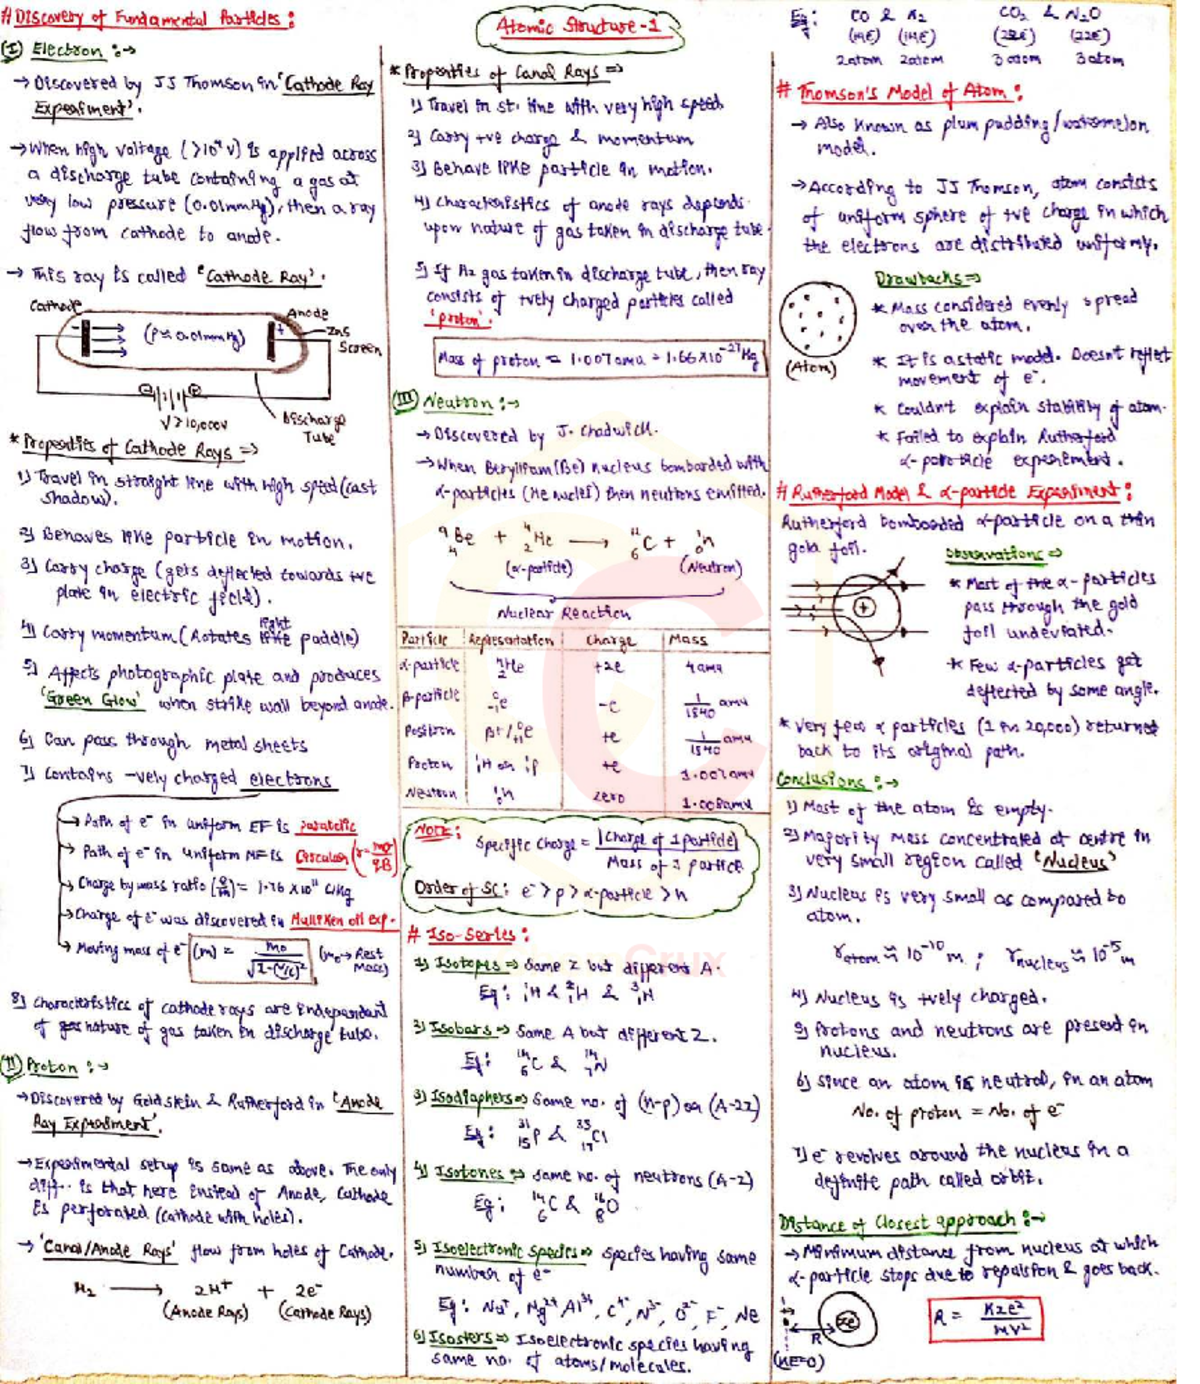 # Discovery of Fundamental Particles:
(I) Electron :→
→ Discovered by JJ Thomson in 'Cathode Ray
Experiment'.
→ When high voltage (>10⁴ V) is applied across
a discharge tube containing a gas at
very low pressure (0.01mmHg), then a ray
flow from cathode to anode.
→ This ray is called 'Cathode Ray'.
Cathode
Anode
(P≈0.01mmHg)
ZnS
Screen
V>10,000V
Discharge
Tube
* Properties of Cathode Rays ⇒
1) Travel in straight line with high speed (cast
shadow).
2) Behaves like particle in motion.
3) Carry charge (gets deflected towards +ve
plate in electric field).
4) Carry momentum (Rotates light paddle)
5) Affects photographic plate and produces
'Green Glow' when strike wall beyond anode.
6) Can pass through metal sheets
7) Contains -vely charged electrons
→ Path of e⁻ in uniform EF is parabolic
→ Path of e⁻ in uniform MF is Circular (r = mv/qB)
→ Charge by mass ratio (e/m) = 1.76 × 10¹¹ C/Kg
→ Charge of e⁻ was discovered in Mulliken oil exp.
→ Moving mass of e⁻ (m) = m₀/√1-(v/c)² (m₀→ Rest
Mass)
8) Characteristics of cathode rays are independant
of nature of gas taken in discharge tube.
(II) Proton :→
→ Discovered by Goldstein & Rutherford in 'Anode
Ray Experiment'.
→ Experimental setup is same as above. The only
diff. is that here instead of Anode, Cathode
is perforated (cathode with holes).
→ 'Canal/Anode Rays' flow from holes of Cathode.
H₂ → 2H⁺ + 2e⁻
(Anode Rays) (Cathode Rays)
Atomic Structure -1
* Properties of Canal Rays ⇒
1) Travel in st. line with very high speed
2) Carry +ve charge & momentum
3) Behave like particle in motion.
4) Characteristics of anode rays depends
upon nature of gas taken in discharge tube.
5) If H₂ gas taken in discharge tube, then ray
consists of +vely charged particles called
'proton'.
Mass of proton = 1.007amu = 1.66×10⁻²⁷Kg
(III) Neutron :→
→ Discovered by J. Chadwick.
→ When Beryllium (Be) nucleus bombarded with
α-particles (He nucles) then neutrons emitted.
⁹₄Be + ⁴₂He → ¹²₆C + ¹₀n
(α-particle) (Neutron)
Nuclear Reaction
Particle Representation Charge Mass
α-particle ⁴₂He +2e 4amu
β-particle ⁰₋₁e -e 1/1840 amu
Positron β⁺/⁰₊₁e +e 1/1840 amu
Proton ¹₁H or ¹₁P +e 1.007amu
Neutron ¹₀n zero 1.008amu
NOTE: Specific Charge = |Charge of 1 particle|
Mass of 1 particle
Order of SC: e⁻ > p > α-particle > n
# Iso-Series:
Crux
1) Isotopes ⇒ Same Z but different A.
Eg: ¹₁H & ²₁H & ³₁H
2) Isobars ⇒ Same A but different Z.
Eg: ¹⁴₆C & ¹⁴₇N
3) Isodiaphers ⇒ Same no. of (n-p) or (A-2Z)
Eg: ³¹₁₅P & ³⁵₁₇Cl
4) Isotones ⇒ Same no. of neutrons (A-Z)
Eg: ¹⁴₆C & ¹⁶₈O
5) Isoelectronic species ⇒ Species having same
number of e⁻
Eg: Na⁺, Mg²⁺, Al³⁺, C⁴⁻, N³⁻, O²⁻, F⁻, Ne
6) Isosters ⇒ Isoelectronic species having
same no. of atoms/molecules.
Eg: CO & N₂ CO₂ & N₂O
(14e) (14e) (22e) (22e)
2atom 2atom 3atom 3atom
# Thomson's Model of Atom:
→ Also known as plum pudding/watermelon
model.
→ According to JJ Thomson, atom consists
of uniform sphere of +ve charge in which
the electrons are distributed uniformly.
(Atom)
Drawbacks ⇒
* Mass considered evenly spread
over the atom.
* It is a static model. Doesn't reflect
movement of e⁻.
* Couldn't explain stability of atom.
* Failed to explain Rutherford
α-particle experiment.
# Rutherford Model & α-particle Experiment:
Rutherford bombarded α-particle on a thin
gold foil.
Observations ⇒
* Most of the α-particles
pass through the gold
foil undeviated.
* Few α-particles get
deflected by some angle.
* Very few α particles (1 in 20,000) returned
back to its original path.
Conclusions :→
1) Most of the atom is empty.
2) Majority mass concentrated at centre in
very small region called 'Nucleus'
3) Nucleus is very small as compared to
atom.
r atom ≈ 10⁻¹⁰ m ; r nucleus ≈ 10⁻⁵ m
4) Nucleus is +vely charged.
5) Protons and neutrons are present in
nucleus.
6) Since an atom is neutral, in an atom
No. of proton = No. of e⁻
7) e⁻ revolves around the nucleus in a
definite path called orbit.
Distance of Closest approach :→
→ Minimum distance from nucleus at which
α-particle stops due to repulsion & goes back.
R
Ze
(KE=0)
R = KZe²/mv²